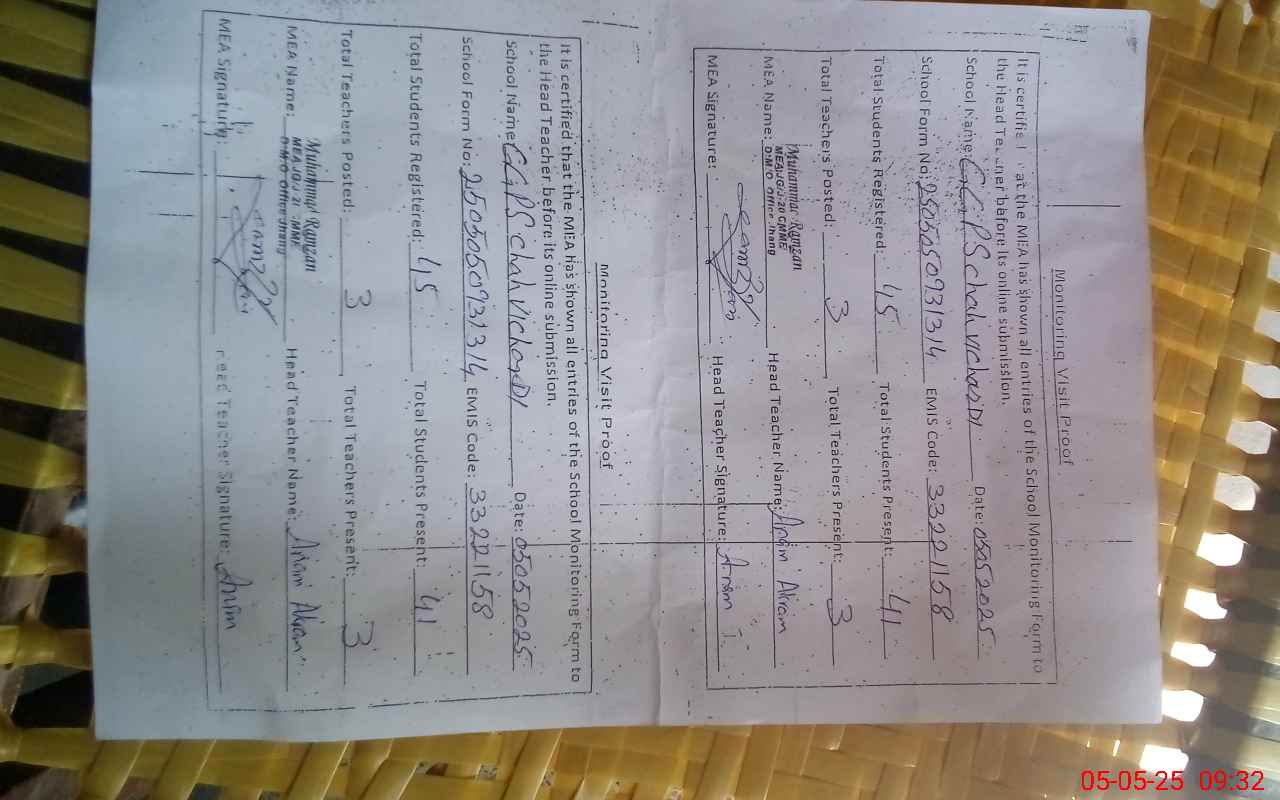 Monitoring Visit Proof
It is certified that the MEA has shown all entries of the School Monitoring Form to
the Head Teacher before its online submission.
School Name: GGPS chah vichanDI Date: 05052025
School Form No: 2505050931314 EMIS Code: 33221158
Total Students Registered: 45 Total Students Present: 41
Total Teachers Posted: 3 Total Teachers Present: 3
Muhammad Ramzan
MEA JG/J-20 CMME
D·M·O Office Jhang
MEA Name: Head Teacher Name: Anam Akram
MEA Signature: Head Teacher Signature: Anam
Monitoring Visit Proof
It is certified that the MEA has shown all entries of the School Monitoring Form to
the Head Teacher before its online submission.
School Name: GGPS chah vichanDI Date: 05052025
School Form No: 2505050931314 EMIS Code: 33221158
Total Students Registered: 45 Total Students Present: 41
Total Teachers Posted: 3 Total Teachers Present: 3
Muhammad Ramzan
MEA JG/J-20 CMME
D·M·O Office Jhang
MEA Name: Head Teacher Name: Anam Akram
MEA Signature: Head Teacher Signature: Anam
05-05-25 09:32